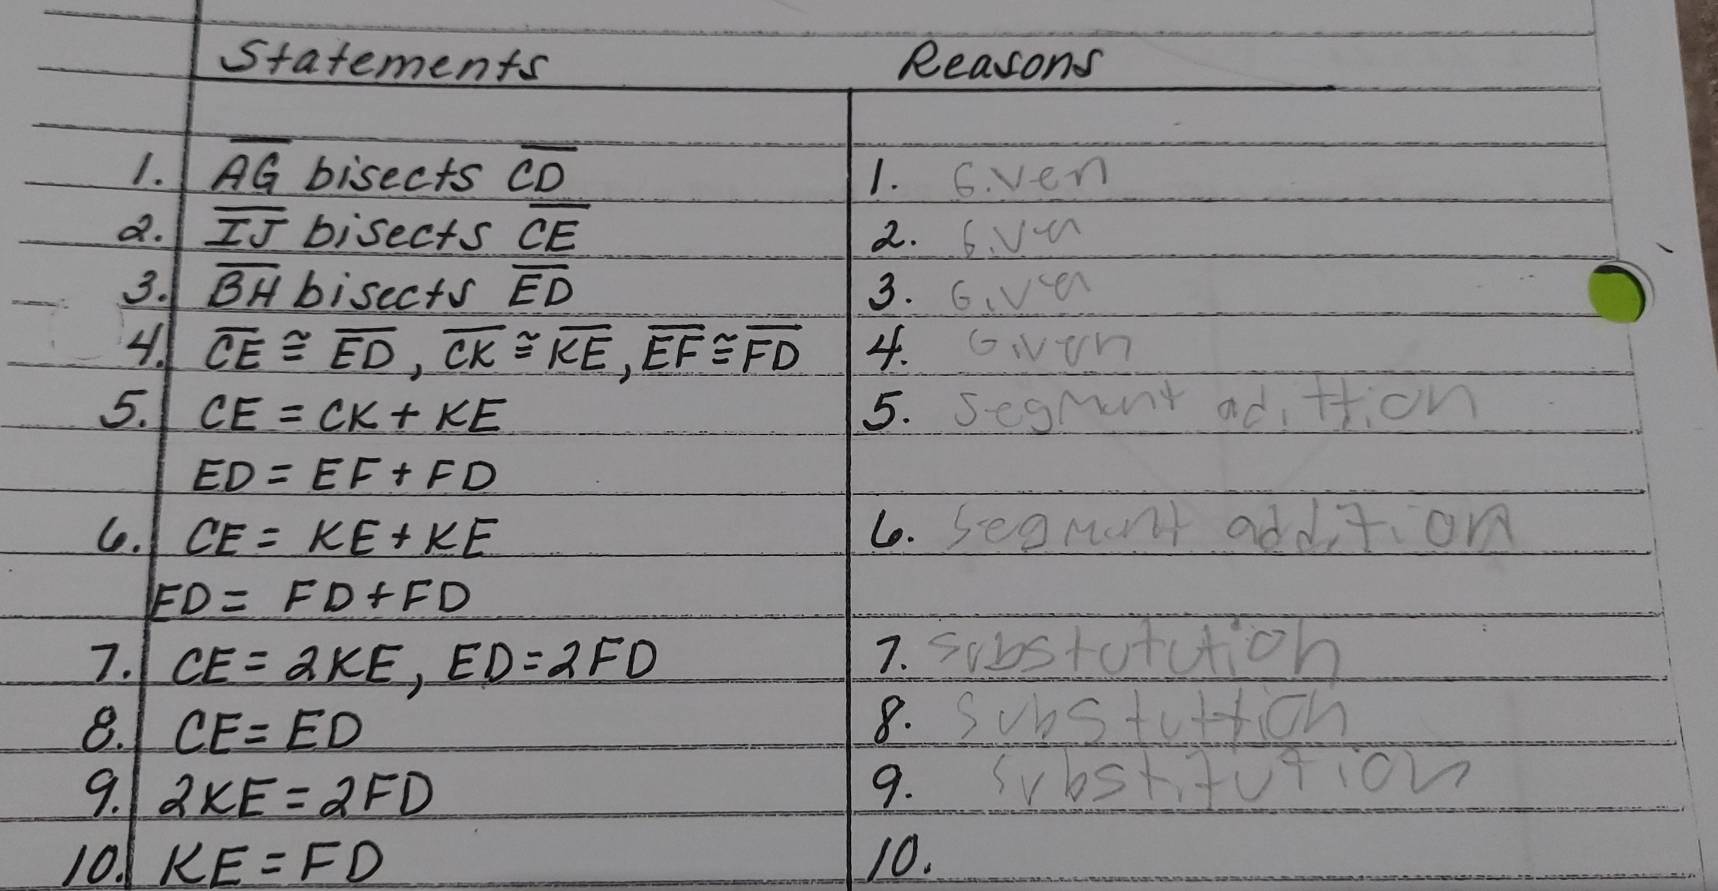 Statements Reasons
1. AG bisects CD 1. Given
2. IJ bisects CE 2. Given
3. BH bisects ED 3. Given
4. CE ≅ ED, CK ≅ KE, EF ≅ FD 4. Given
5. CE = CK + KE 5. Segment addition
ED = EF + FD
6. CE = KE + KE 6. Segment addition
ED = FD + FD
7. CE = 2KE, ED = 2FD 7. Substutution
8. CE = ED 8. Substuttion
9. 2KE = 2FD 9. Substitution
10. KE = FD 10.